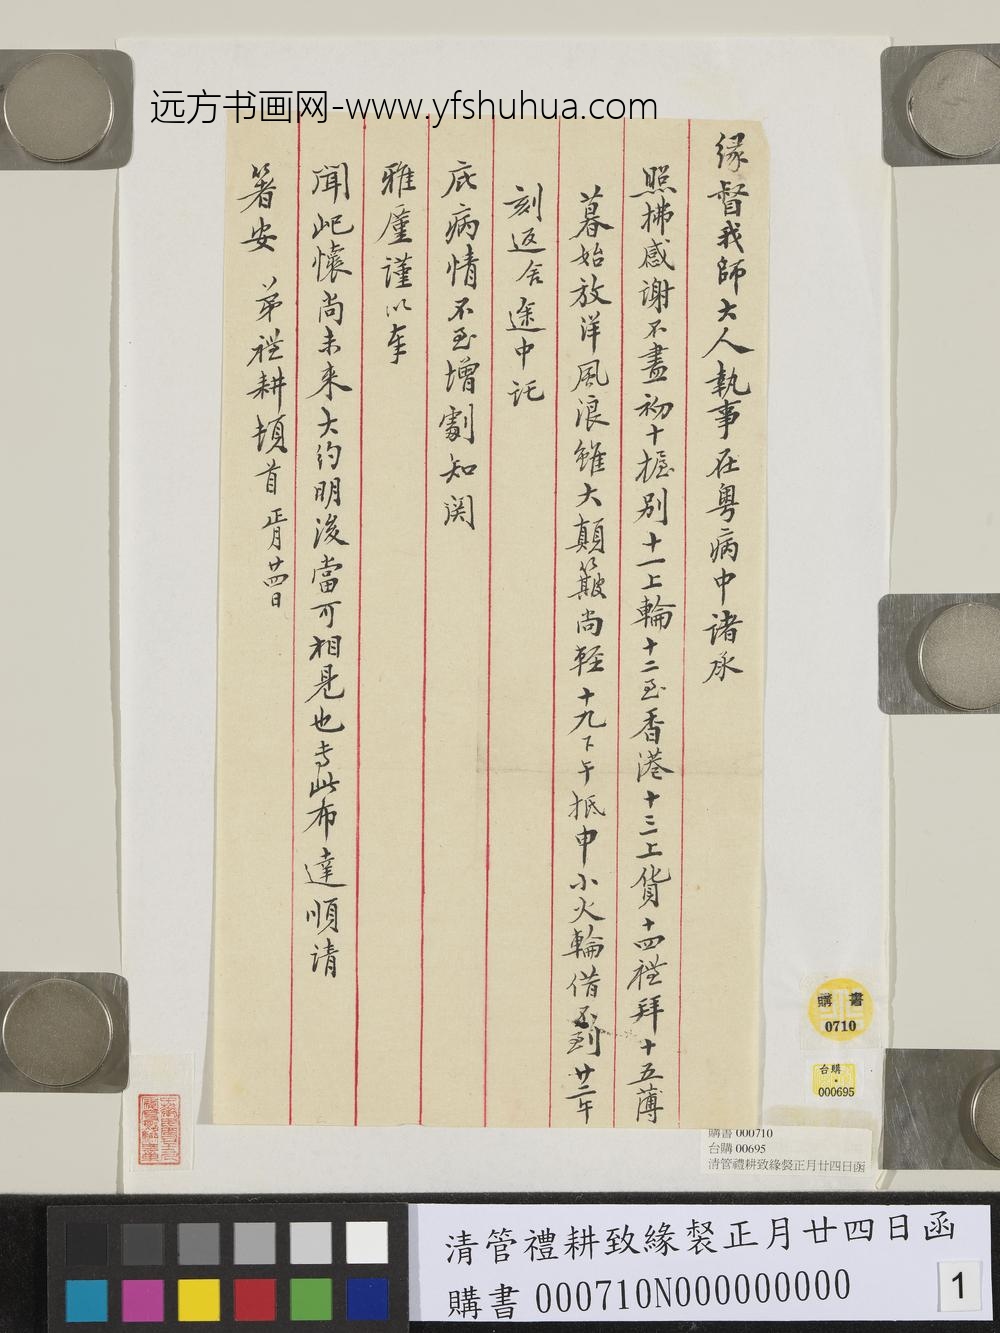 远方书画网-www.yfshuhua.com
緣督我師大人執事在粤病中諸承
照拂感謝不盡初十握別十一上輪十二至香港十三上貨十四禮拜十五薄
暮始放洋風浪雖大顛簸尚輕十九下午抵申小火輪借不到廿二午
刻返舍途中託
庇病情不至增劇知関
雅廑謹以奉
聞屺懷尚未來大約明後當可相見也専此布達順請
箸安 弟禮耕頓首 正月廿四日
購書
0710
台購
000695
購書 000710
台購 00695
清管禮耕致緣裻正月廿四日函
清管禮耕致緣裻正月廿四日函
購書 000710N000000000
1